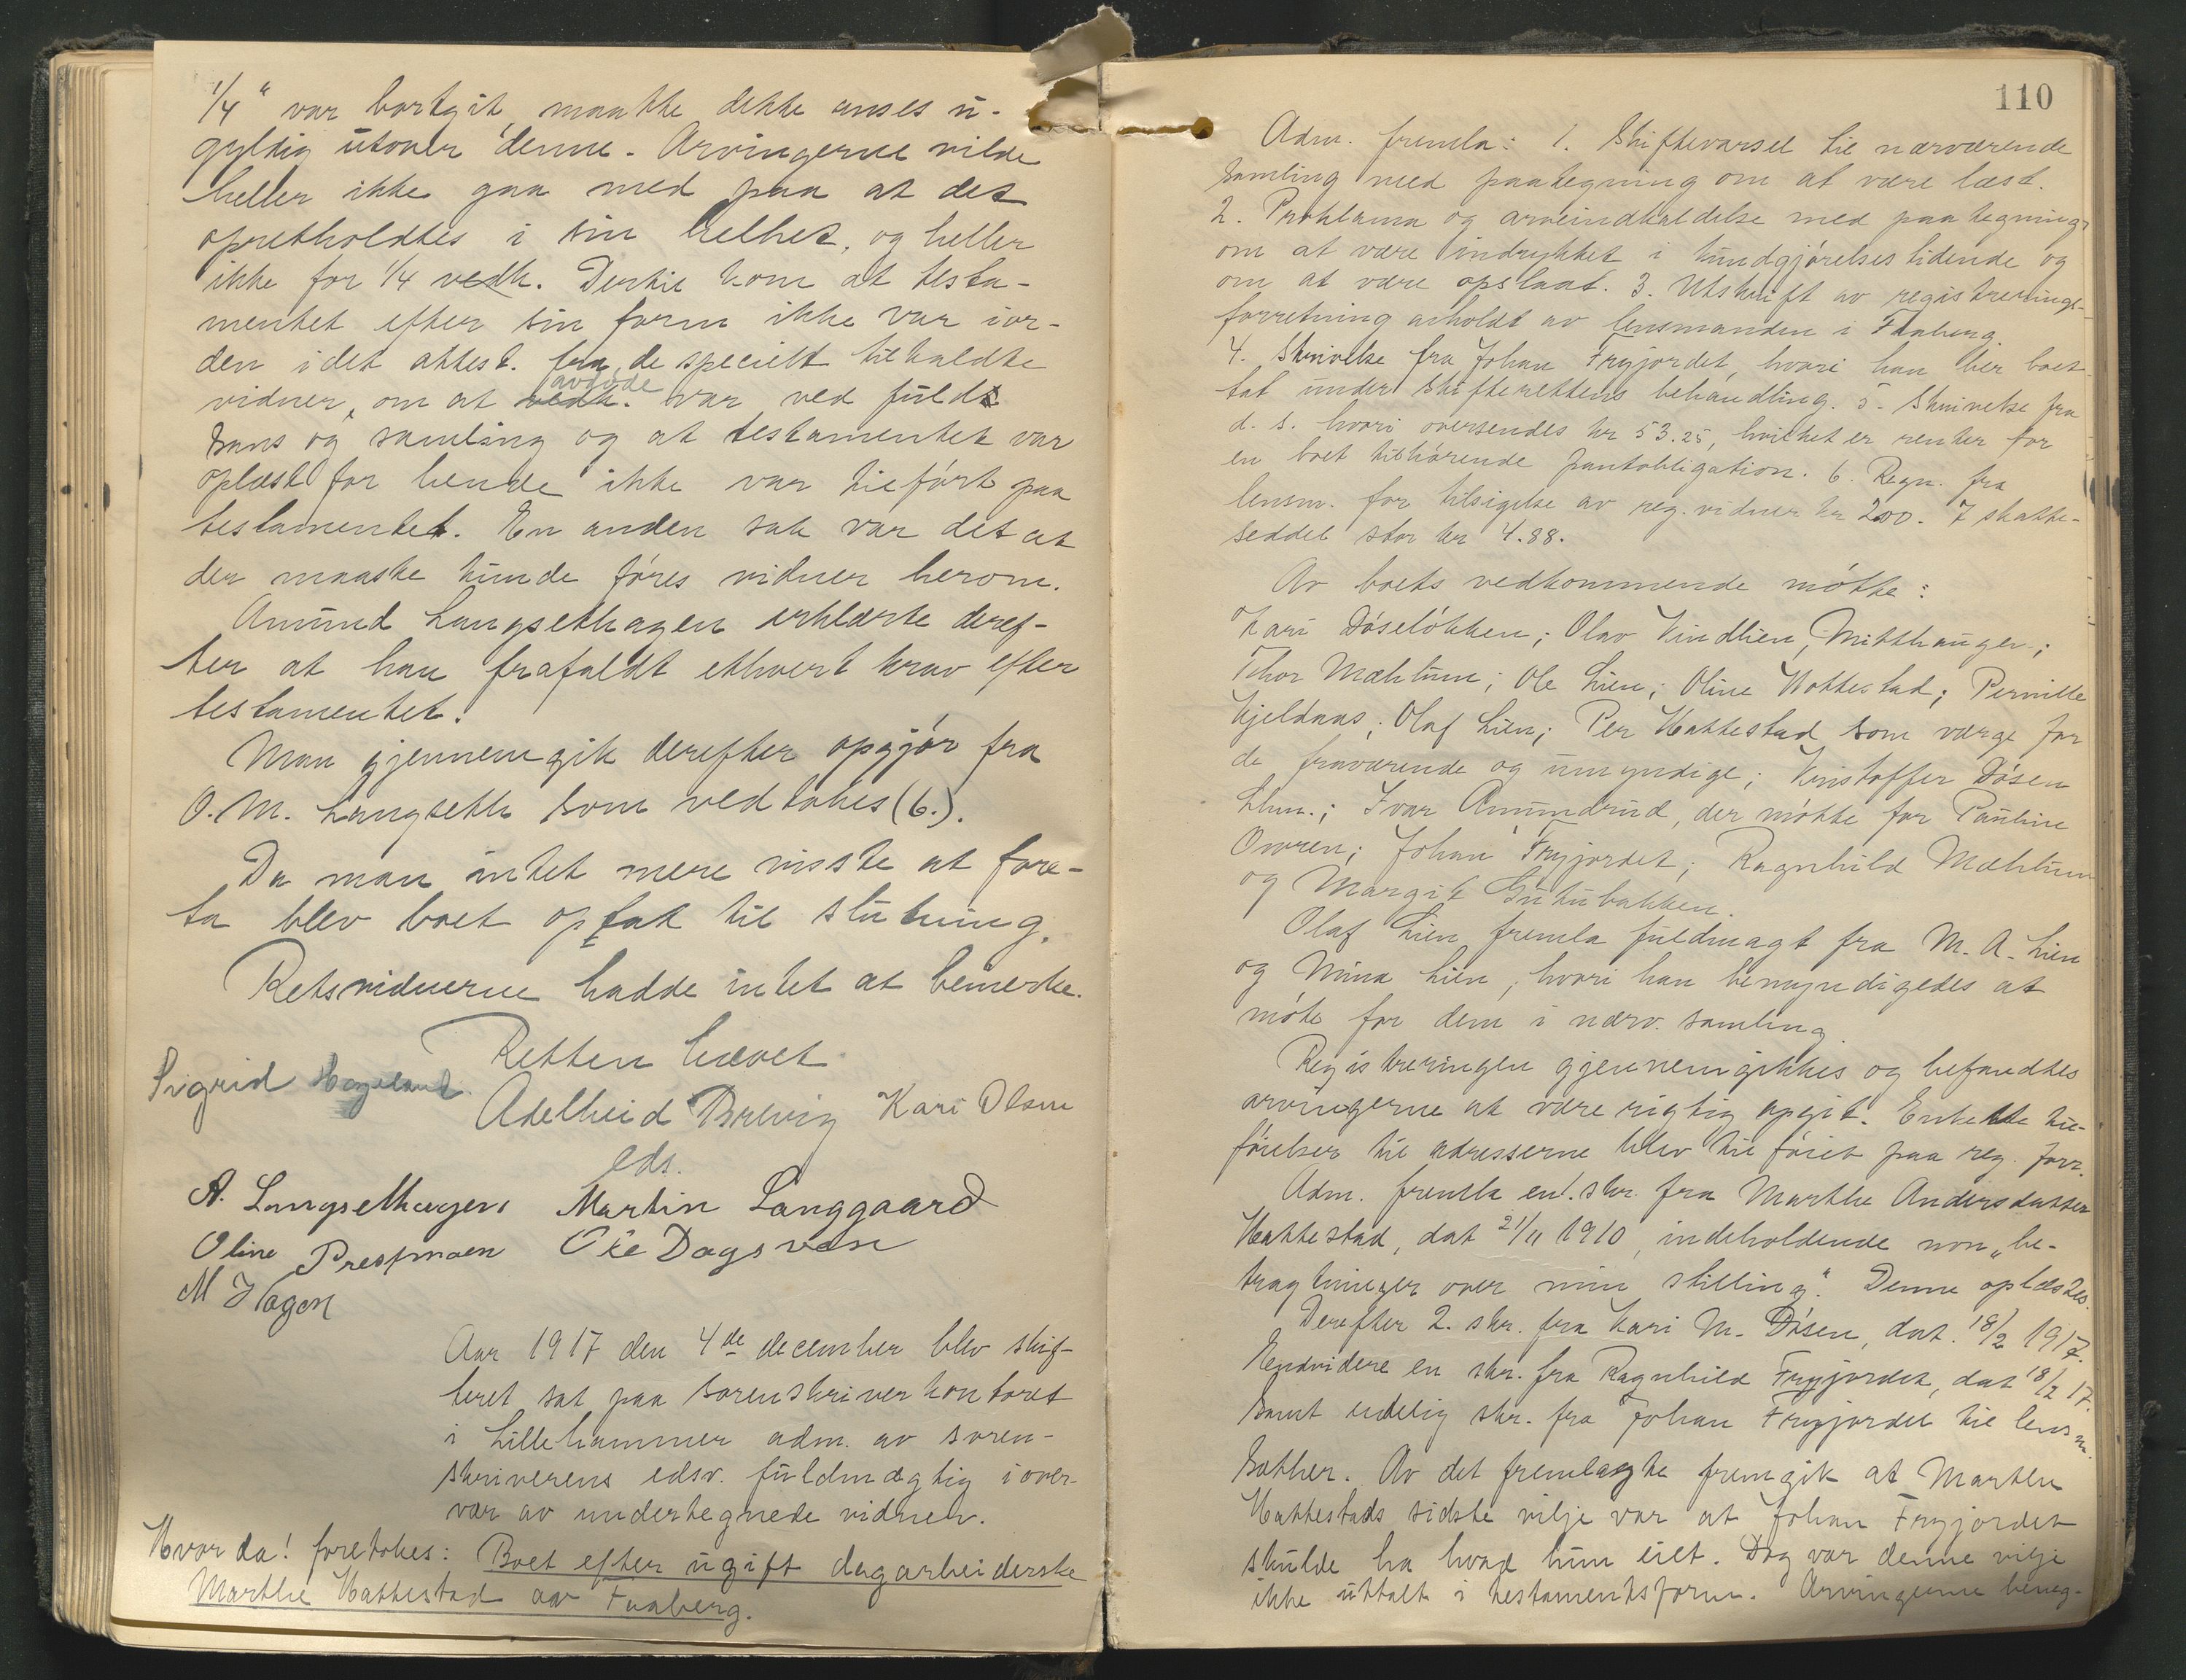 1/4" var bortgit, maatte dette anses u-
gyldig utover denne. Arvingerne vilde
heller ikke gaa med paa at det
opretholdtes i sin helhet, og heller
ikke for 1/4 vedk. Dertil kom at testa-
mentet efter sin form ikke var ior-
den idet attest. fra de specielt tilkaldte
vidner, om at vedk. avdøde var ved fuld
sans og samling og at testamentet var
oplæst for hende ikke var tilført paa
testamentet. En anden sak var det at
der maaske kunde føres vidner herom.
Amund Langsethagen erklærte deref-
ter at han frafaldt ethvert krav efter
testamentet.
Man gjennemgik derefter opgjør fra
O. M. Langseth som vedtokes (6.).
Da man intet mere visste at fore-
ta blev boet optat til slutning.
Retsvidnerne hadde intet at bemerke.
Retten hævet
Sigrid Hageland
Adelheid Brevig Kari Olsen
eds.
A. Langsethagen Martin Langgaard
Oline Prestmoen Ole Dagsvan
M Hagen
Aar 1917 den 4de december blev skif-
teret sat paa sorenskriverkontoret
i Lillehammer adm. av soren-
skriverens edsv. fuldmægtig i over-
vær av undertegnede vidner.
Hvorda! foretokes: Boet efter ugift dagarbeiderske
Marthe Hattestad av Faaberg.
110
Adm. fremla: 1. Skiftevarsel til nærværende
samling med paategning om at være læst.
2. Proklama og arveindkaldelse med paategning
om at være indrykket i kundgjørelsestidende og
om at være opslaat. 3. Utskrift av registrerings-
forretning avholdt av lensmanden i Faaberg.
4. Skrivelse fra Johan Frygjordet, hvori han ber boet
tat under skifterettens behandling. 5. Skrivelse fra
d. s. hvori oversendes kr 53.25, hvilket er renter for
en boet tilhørende pantobligation. 6. Regn. fra
lensm. for tilsigelse av reg. vidner kr 2.00. 7 skatte-
seddel stor kr 4.88.
Av boets vedkommende møtte:
Kari Døseløkken; Olav Vindlien, Mitthaugen;
Thor Mæhlum; Ole Lien; Oline Hattestad; Pernille
Kjeldaas; Olaf Lien; Per Hattestad som værge for
de fraværende og umyndige; Kristoffer Døsen
Lhm.; Ivar Amundrud, der møtte for Pauline
Owren; Johan Frygjordet; Ragnhild Mæhlum
og Margit Gutubakken.
Olaf Lien fremla fuldmagt fra M. A. Lien
og Mina Lien, hvori han bemyndigedes at
møte for dem i nærv. samling.
Registreringen gjennemgikkes og befandtes
arvingerne at være rigtig opgit. Enkelte til-
føielser til adresserne blev tilføiet paa reg. forr.
Adm. fremla en 1. skr. fra Marthe Andersdatter
Hattestad, dat 21/11 1910, indeholdende non „be-
tragtninger over min stilling". Denne oplæstes.
Derefter 2. skr. fra Kari M. Døsen, dat. 18/2 1917.
Endvidere en skr. fra Ragnhild Frygjordet, dat 18/2 17.
samt endelig skr. fra Johan Frygjordet til lensm.
Bøther. Av det fremlagte fremgik at Marthe
Hattestads sidste vilje var at Johan Frygjordet
skulde ha hvad hun eiet. Dog var denne vilje
ikke uttalt i testamentsform. Arvingerne beneg-